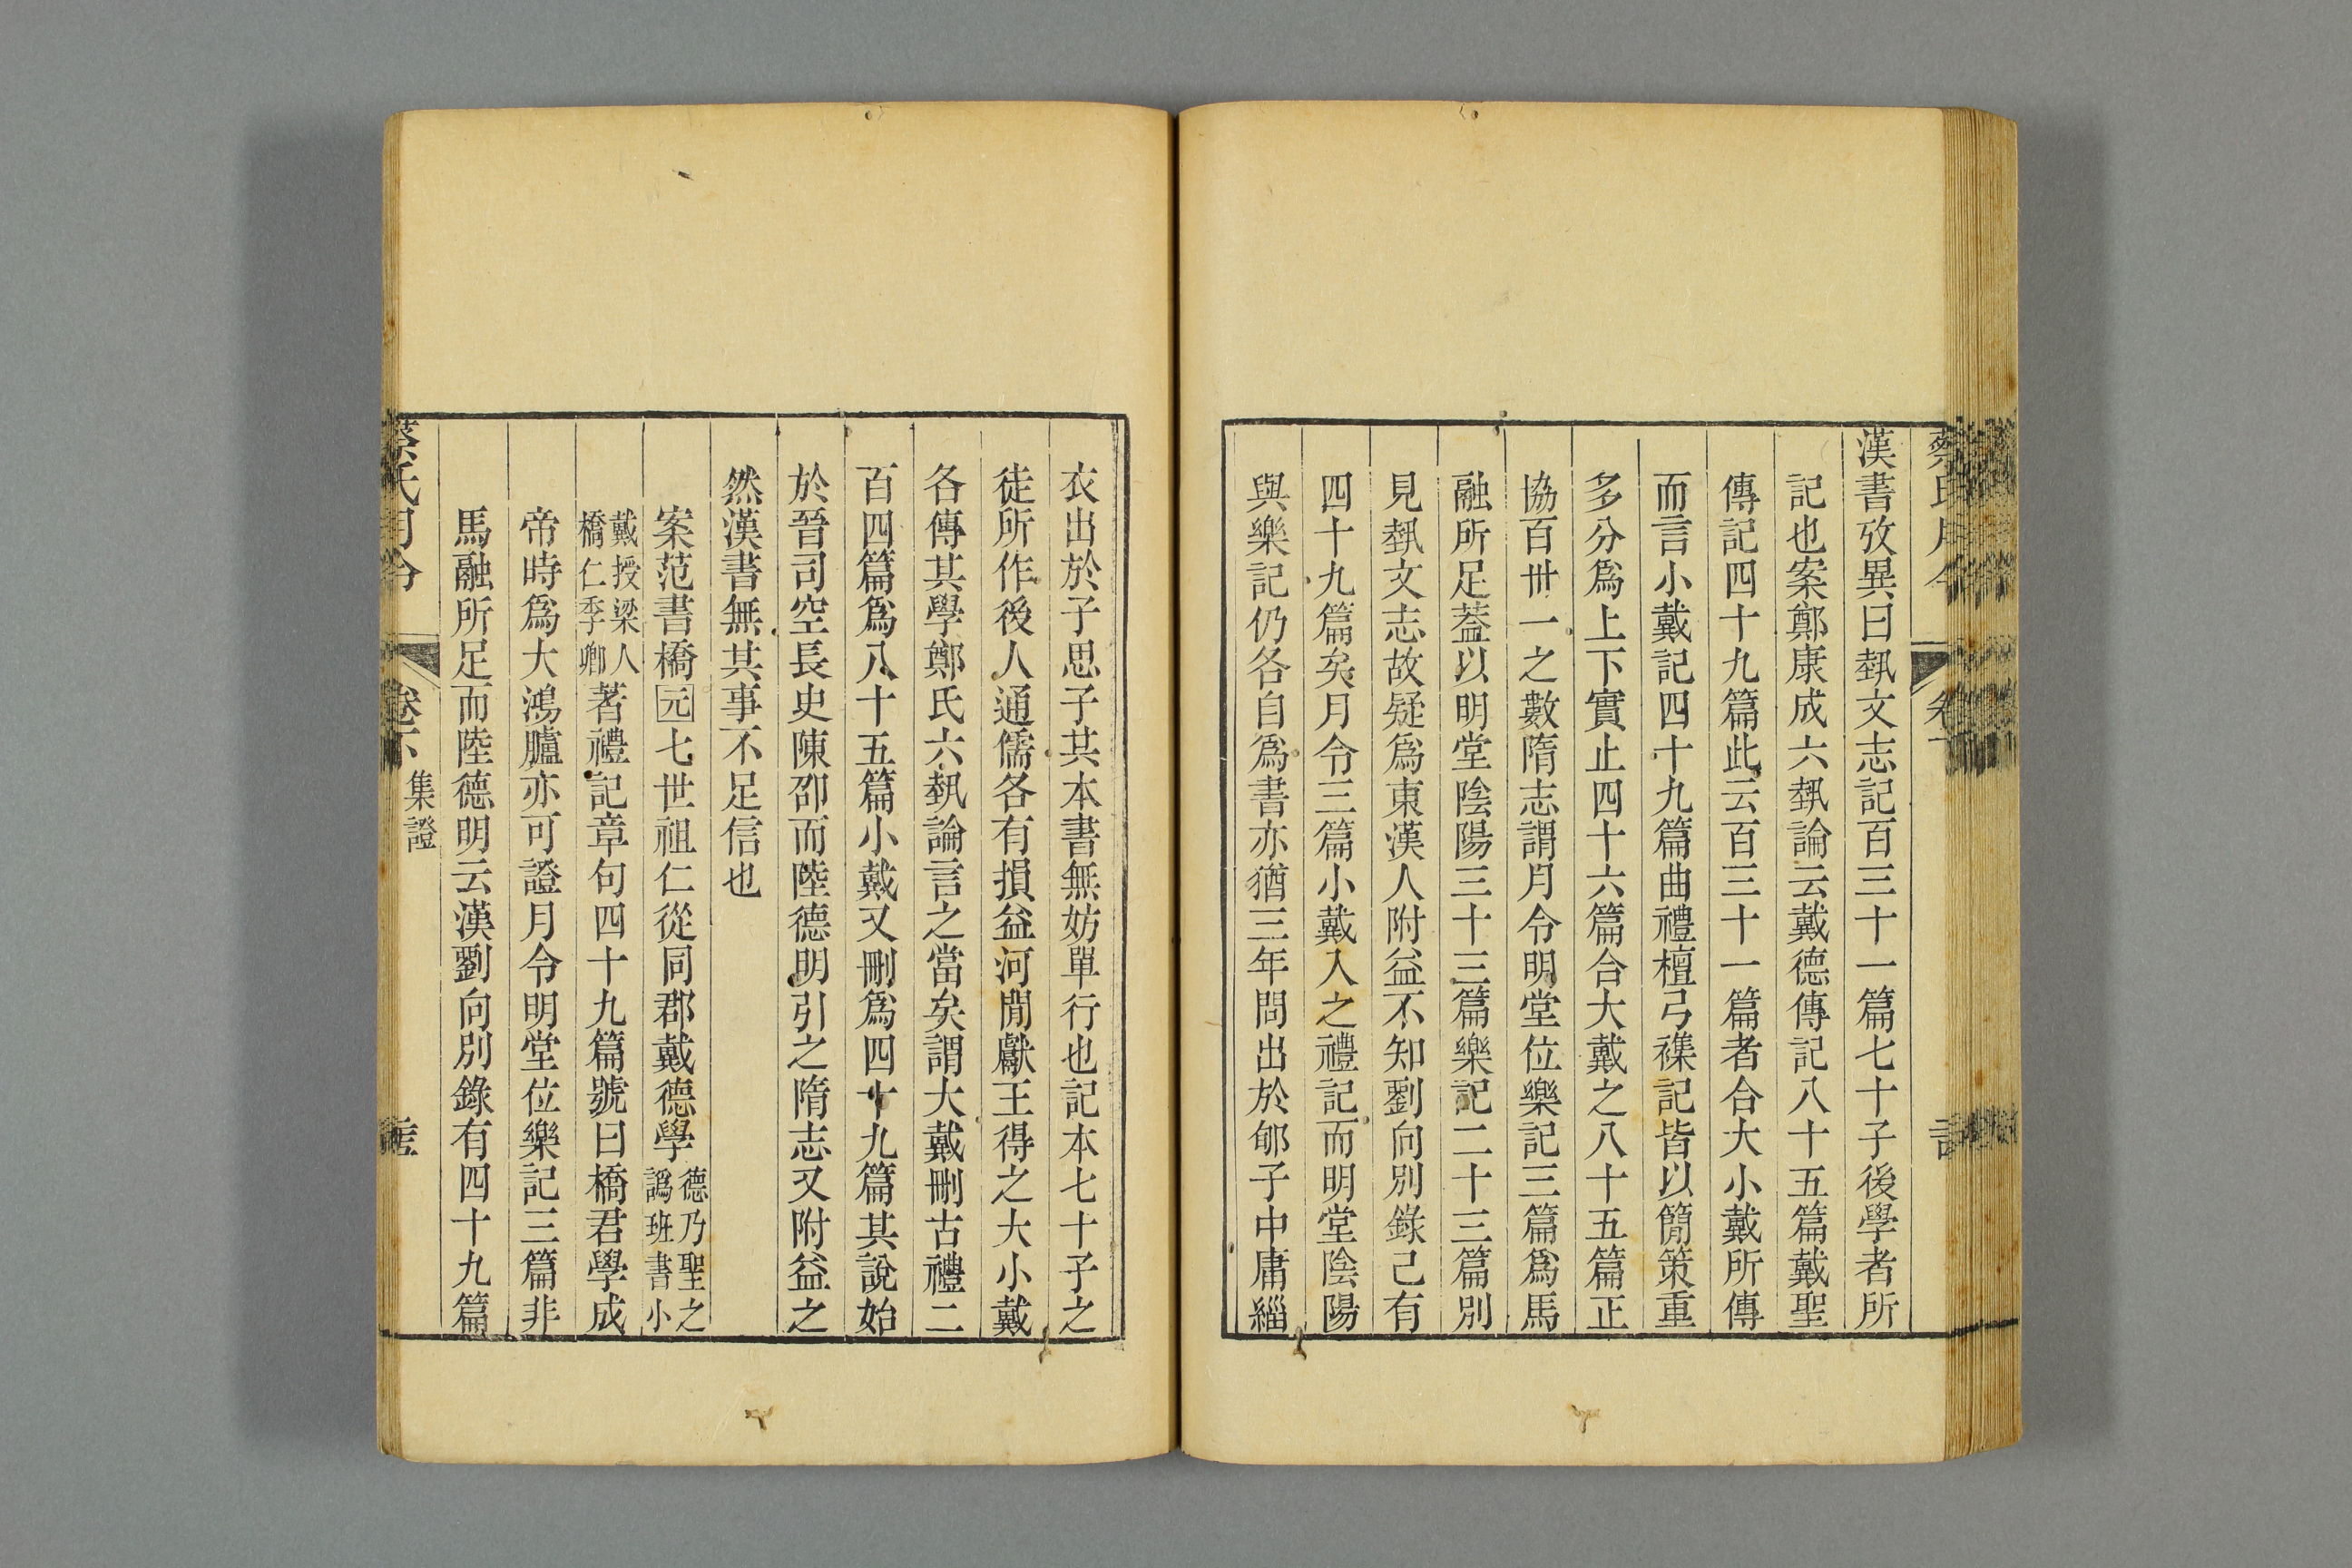 漢書攷異曰埶文志記百三十一篇七十子後學者所
記也案鄭康成六埶論云戴德傳記八十五篇戴聖
傳記四十九篇此云百三十一篇者合大小戴所傳
而言小戴記四十九篇曲禮檀弓襍記皆以簡策重
多分爲上下實止四十六篇合大戴之八十五篇正
協百卅一之數隋志謂月令明堂位樂記三篇爲馬
融所足葢以明堂陰陽三十三篇樂記二十三篇別
見埶文志故疑爲東漢人附益不知劉向別錄己有
四十九篇矣月令三篇小戴入之禮記而明堂陰陽
與樂記仍各自爲書亦猶三年問出於郇子中庸緇
衣出於子思子其本書無妨單行也記本七十子之
徒所作後人通儒各有損益河閒獻王得之大小戴
各傳其學鄭氏六埶論言之當矣謂大戴刪古禮二
百四篇爲八十五篇小戴又刪爲四十九篇其說始
於晉司空長史陳卲而陸德明引之隋志又附益之
然漢書無其事不足信也
案范書橋元七世祖仁從同郡戴德學德乃聖之譌班書小
戴授梁人橋仁季卿著禮記章句四十九篇號曰橋君學成
帝時爲大鴻臚亦可證月令明堂位樂記三篇非
馬融所足而陸德明云漢劉向別錄有四十九篇
蔡氏月令 卷下 集證